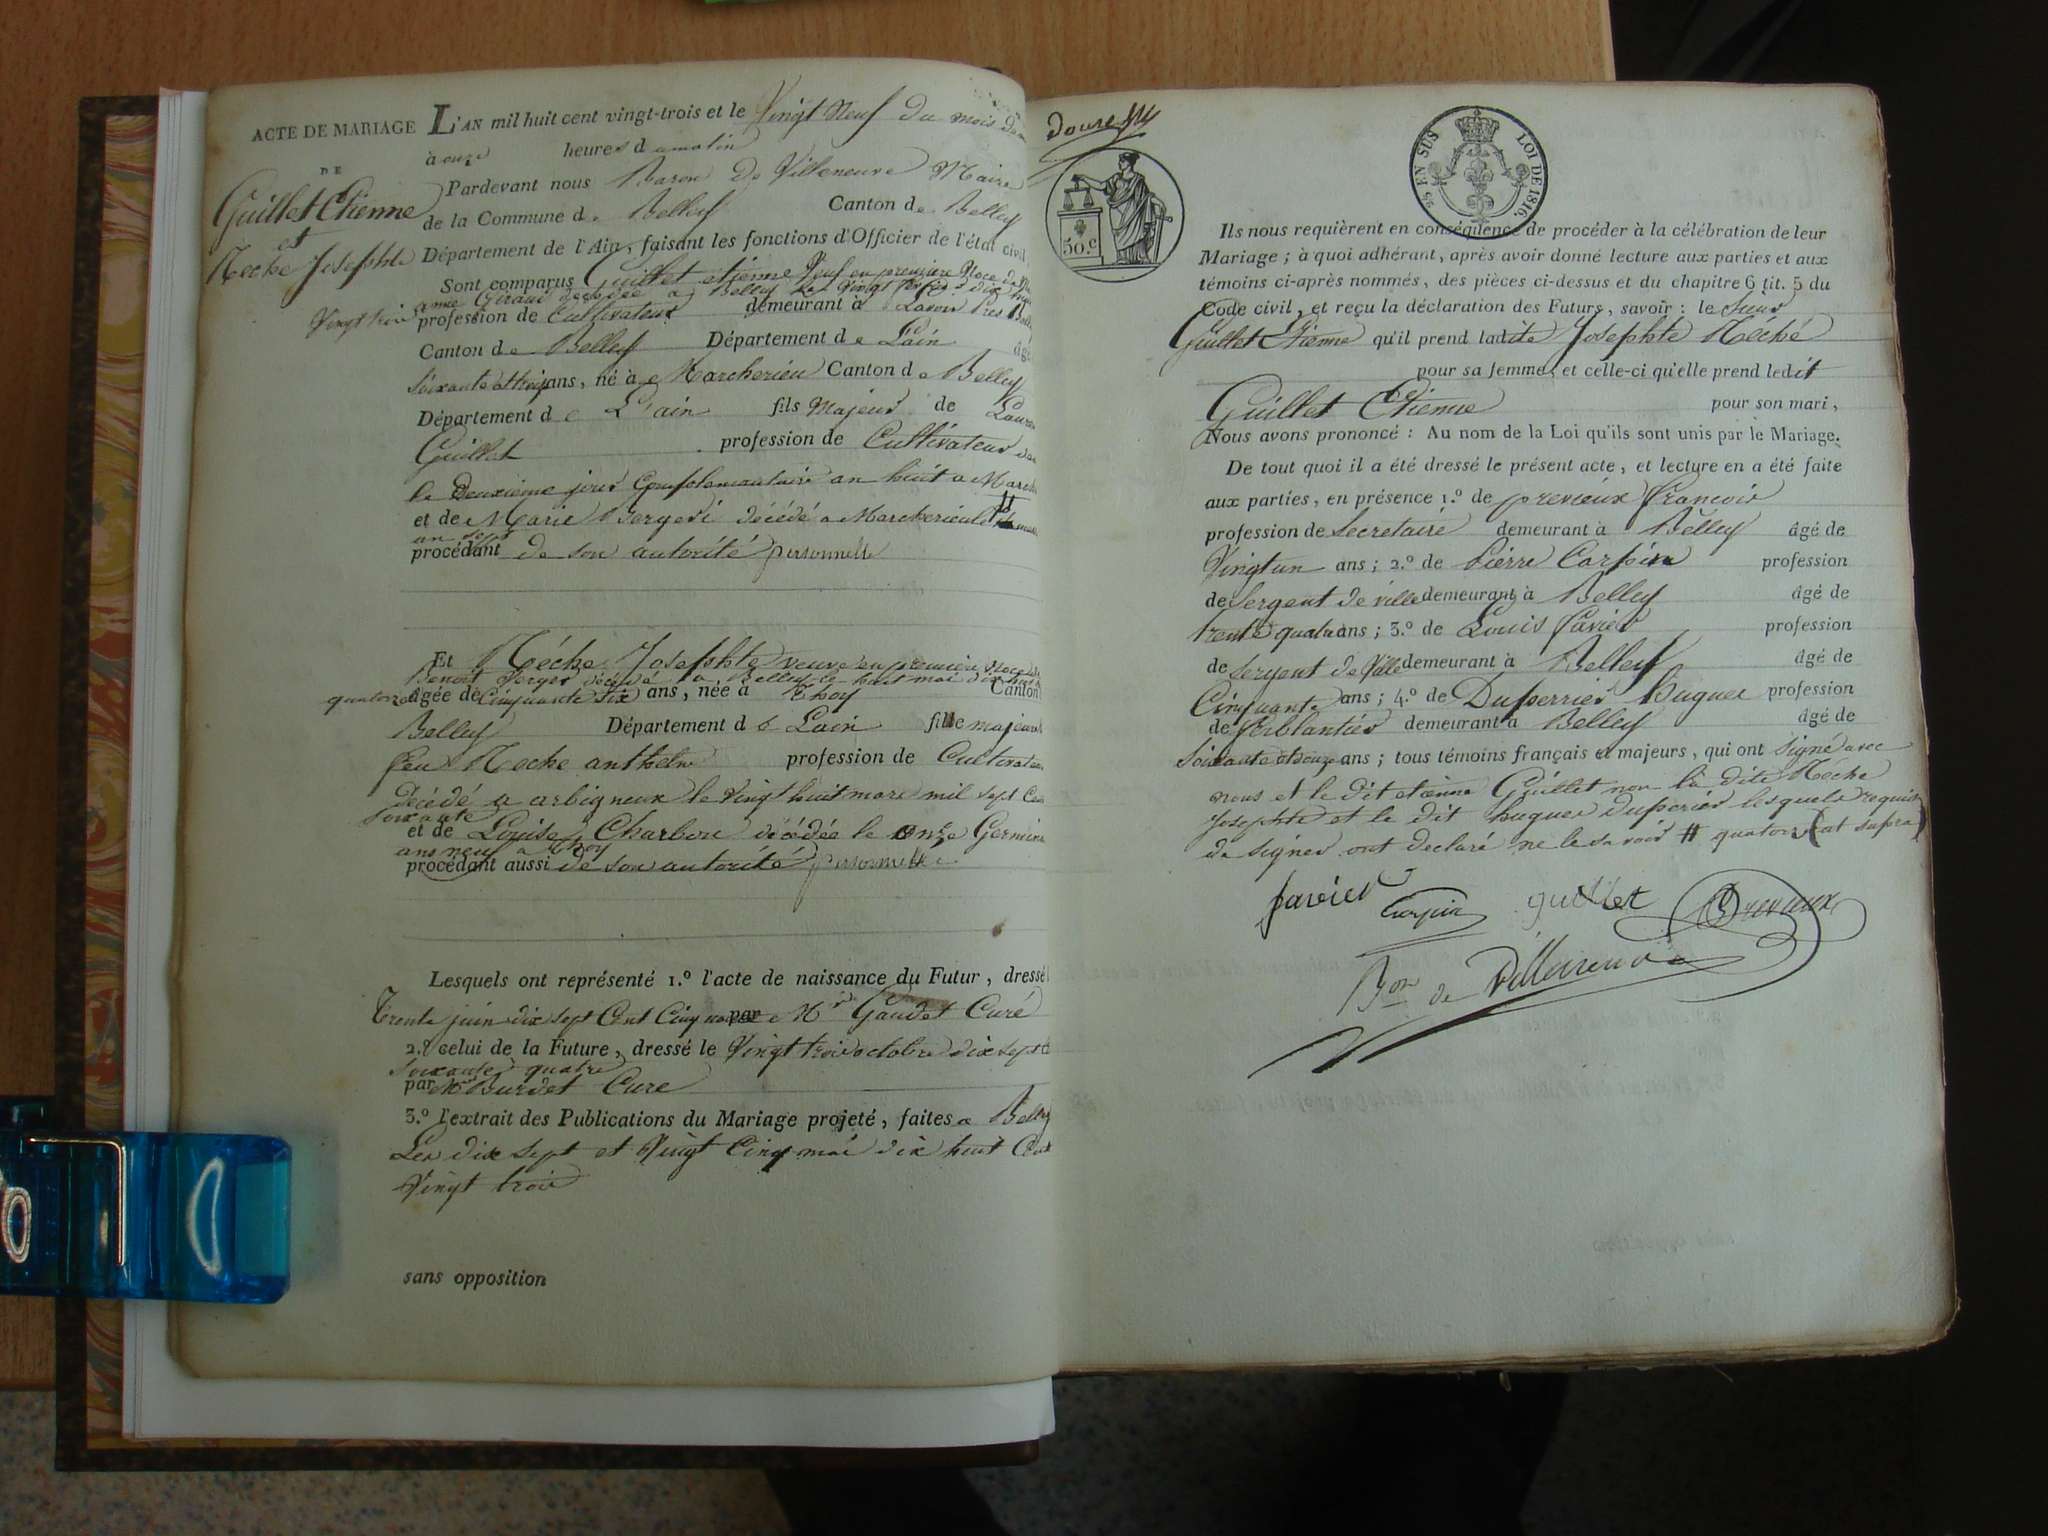 ACTE DE MARIAGE
DE
Guillet Etienne
et
Meche Josephte
L'AN mil huit cent vingt-trois et le Vingt Neuf du mois de
à onze heures du matin
Pardevant nous Baron De Villeneuve Maire
de la Commune de Belley Canton de Belley
Département de l'Ain, faisant les fonctions d'Officier de l'état civil
Sont comparus Guillet etienne Veuf en première Noce de
anne Giraud décédée a Belley Le Vingt dix huit
Vingt trois profession de Cultivateur demeurant à Près Belley
Canton de Belley Département de Lain âgé
Soixante et treize ans, né à Marcherieu Canton de Belley
Département de L'ain fils Majeur de
Guillet profession de Cultivateur
le Deuxième jour Complementaire an huit a
et de Marie Bergeri décédé a Marcherieu le
an sept
procédant de son autorité personnelle
Et Méche Josephte veuve en première Noce de
Benoit Berger décédé a Belley le huit mai dix huit
quatorze âgée de Cinquante Six ans, née à Thoy Canton
Belley Département de Lain fille majeure
feu Meche anthelm profession de Cultivateur
Décédé a arbigneux le Vingt huit mars mil sept Cent
soixante
et de Louise Charbon décédée le onze Germinal
ans neuf a Thoy
procédant aussi de son autorité personnelle
Lesquels ont représenté 1.º l'acte de naissance du Futur, dressé
Trente juin dix sept Cent Cinquante par Mr Gaudet Curé
2.º celui de la Future, dressé le Vingt trois octobre dix sept
Soixante quatre
par Mr Burdet Cure
3.º l'extrait des Publications du Mariage projeté, faites a Belley
Les dix sept et Vingt Cinq mai dix huit Cent
Vingt trois
sans opposition
50.c
25 EN SUS LOI DE 1816.
Ils nous requièrent en conséquence de procéder à la célébration de leur
Mariage ; à quoi adhérant, après avoir donné lecture aux parties et aux
témoins ci-après nommés, des pièces ci-dessus et du chapitre 6 tit. 5 du
Code civil, et reçu la déclaration des Futurs, savoir : le Sieur
Guillet Etienne qu'il prend ladite Josephte Méché
pour sa femme, et celle-ci qu'elle prend ledit
Guillet Etienne pour son mari,
Nous avons prononcé : Au nom de la Loi qu'ils sont unis par le Mariage.
De tout quoi il a été dressé le présent acte, et lecture en a été faite
aux parties, en présence 1.º de previeux francois
profession de Secretaire demeurant à Belley âgé de
Vingt un ans ; 2.º de Pierre Carpin profession
de Sergent de ville demeurant à Belley âgé de
trente quatre ans ; 3.º de Louis Favier profession
de Sergent de Ville demeurant à Belley âgé de
Cinquante ans ; 4.º de Dusperrier hugue profession
de ferblantier demeurant à Belley âgé de
Soixante et douze ans ; tous témoins français et majeurs, qui ont signé avec
nous et le dit etienne Guillet non la dite Méche
Josephte et le dit hugue dusperier lesquels requis
de signer ont declaré ne le savoir # quatorze (at supra)
favier Carpin guillet Previeux
Bon de Villeneuve